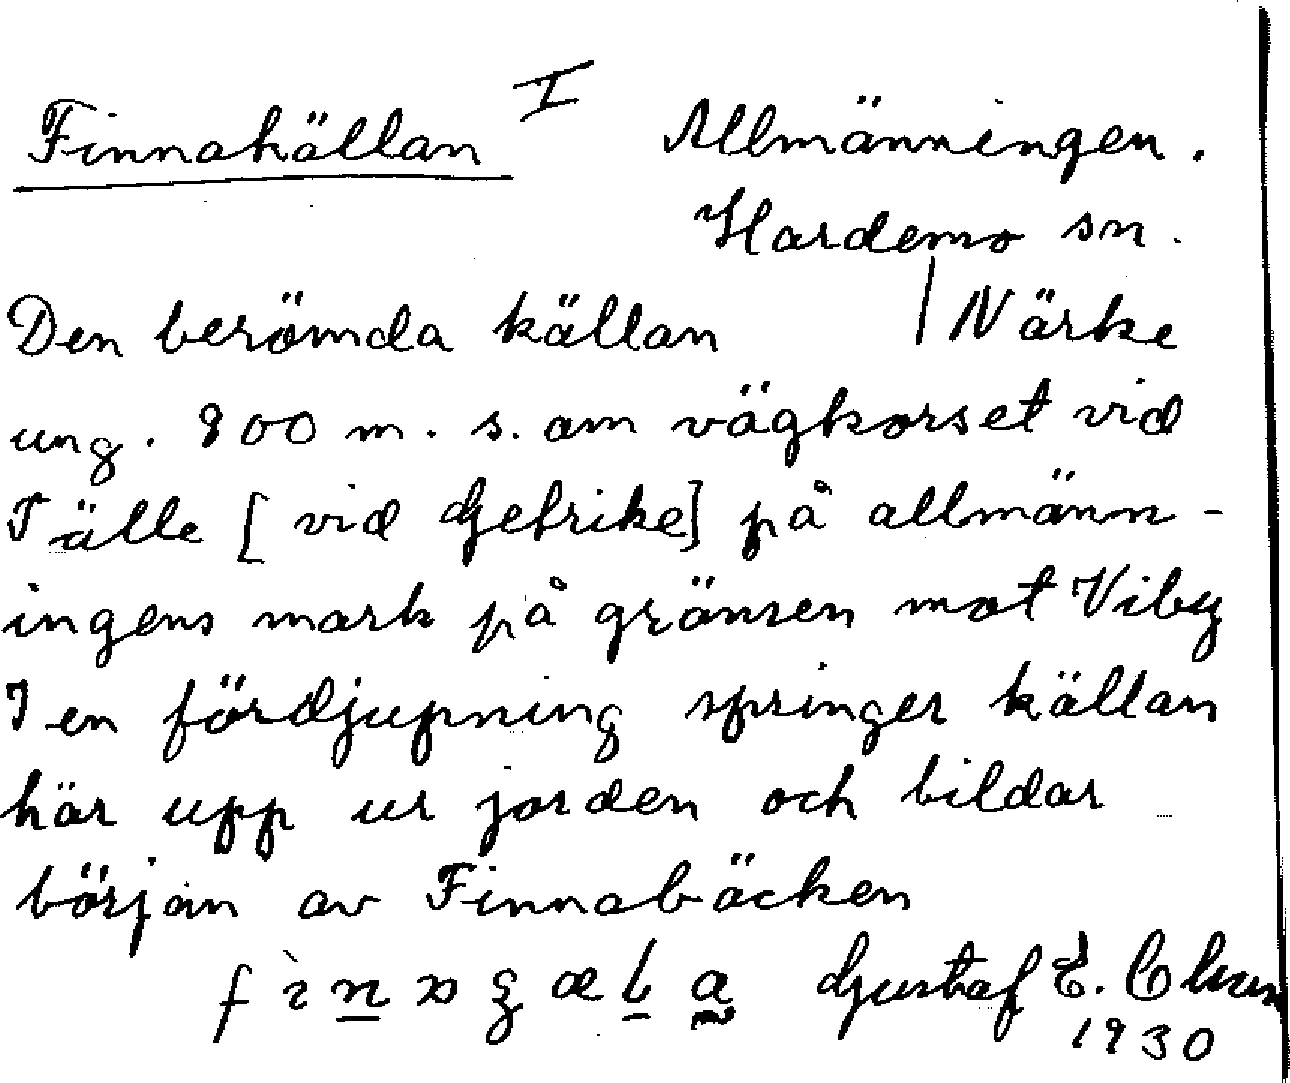 Finnakällan I Allmänningen.
Hardemo sn.
Den berömda källan | Närke
ung. 800 m. s. om vägkorset vid
Tälle [vid Gefrike] på allmänn-
ingens mark på gränsen mot Viby
I en fördjupning springer källan
här upp ur jorden och bildar
början av Finnabäcken
Gustaf E.
1930